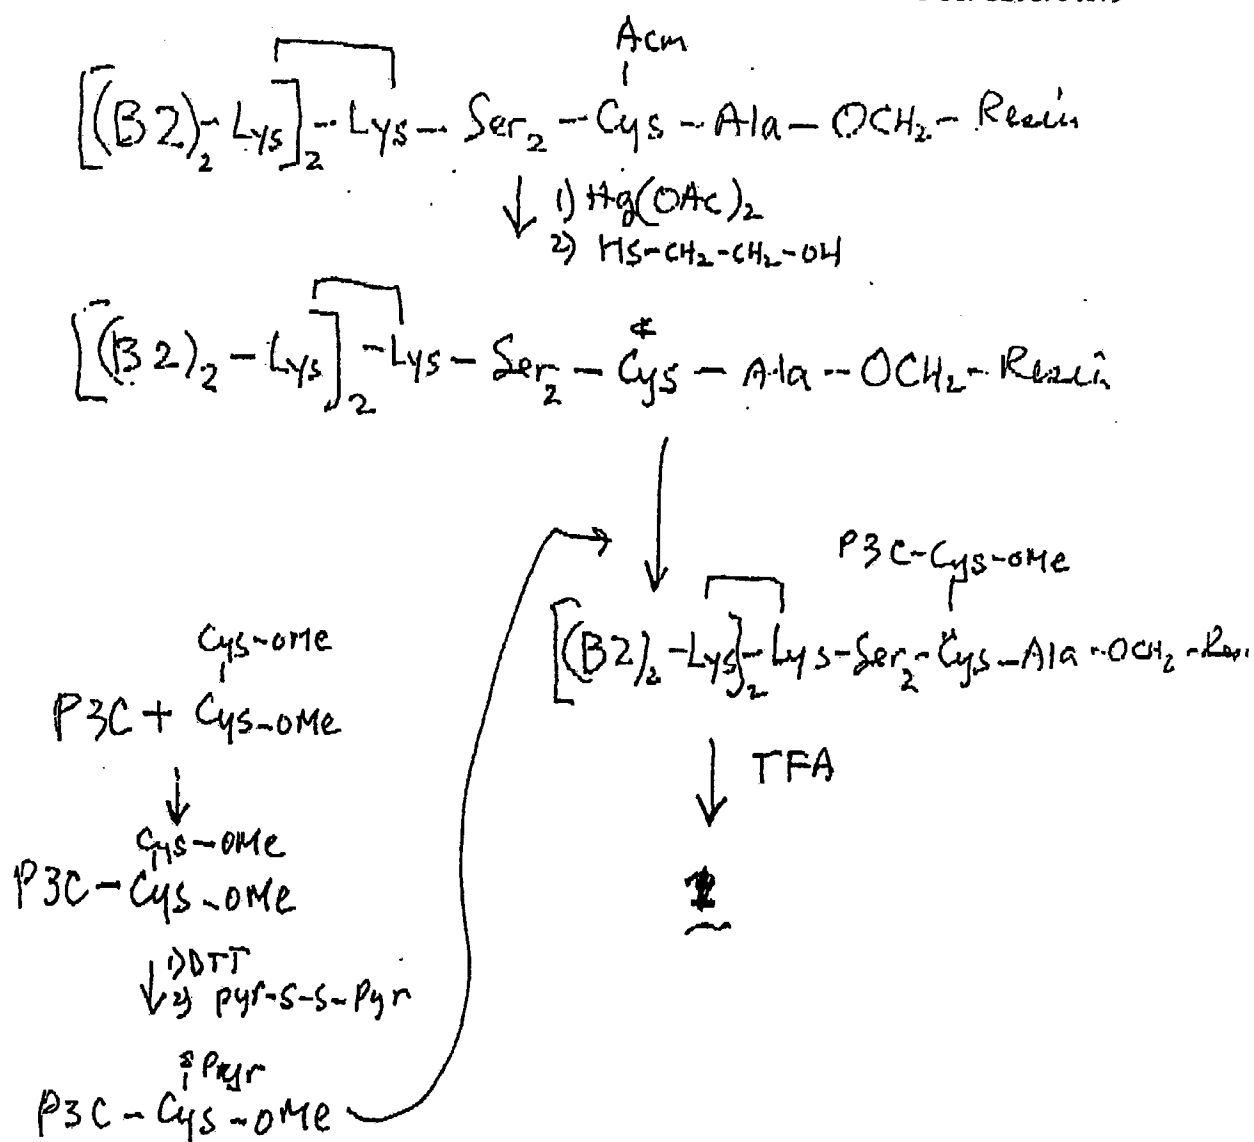 Acm
[(B2)2-Lys]2-Lys-Ser2-Cys-Ala-OCH2-Resin
1) Hg(OAc)2
2) HS-CH2-CH2-OH
[(B2)2-Lys]2-Lys-Ser2-Cys-Ala-OCH2-Resin
P3C-Cys-OMe
[(B2)2-Lys]2-Lys-Ser2-Cys-Ala-OCH2-Res
Cys-OMe
P3C + Cys-OMe
TFA
Cys-OMe
P3C-Cys-OMe
1) DTT
2) Pyr-S-S-Pyr
P3C-Cys-OMe